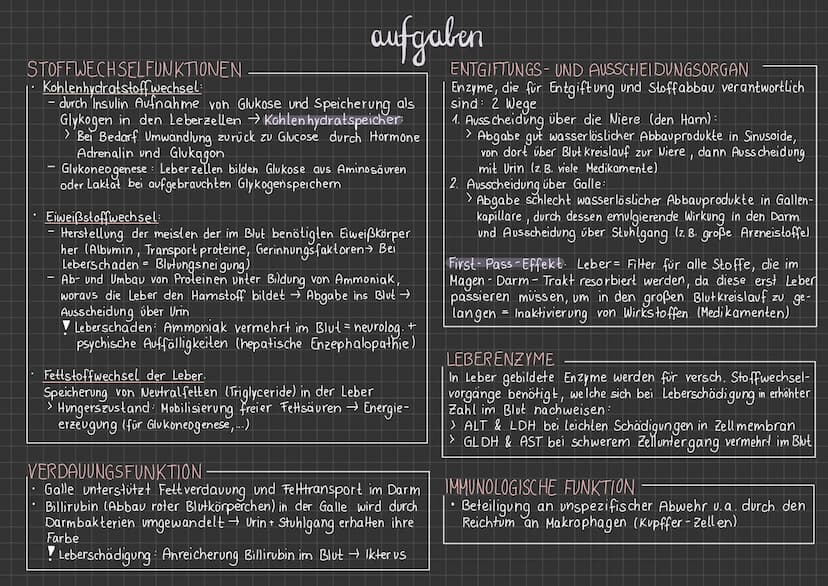 aufgaben
STOFFWECHSELFUNKTIONEN
· Kohlenhydratstoffwechsel:
– durch Insulin Aufnahme von Glukose und Speicherung als
Glykogen in den Leberzellen → Kohlenhydratspeicher
> Bei Bedarf Umwandlung zurück zu Glucose durch Hormone
Adrenalin und Glukagon
– Glukoneogenese: Leberzellen bilden Glukose aus Aminosäuren
oder Laktat bei aufgebrauchten Glykogenspeichern
· Eiweißstoffwechsel:
– Herstellung der meisten der im Blut benötigten Eiweißkörper
her (Albumin, Transportproteine, Gerinnungsfaktoren → Bei
Leberschaden = Blutungsneigung)
– Ab- und Umbau von Proteinen unter Bildung von Ammoniak,
woraus die Leber den Harnstoff bildet → Abgabe ins Blut →
Ausscheidung über Urin
! Leberschaden: Ammoniak vermehrt im Blut = neurolog. +
psychische Auffälligkeiten (hepatische Enzephalopathie)
· Fettstoffwechsel der Leber:
Speicherung von Neutralfetten (Triglyceride) in der Leber
> Hungerszustand: Mobilisierung freier Fettsäuren → Energie-
erzeugung (für Glukoneogenese,...)
VERDAUUNGSFUNKTION
· Galle unterstützt Fettverdauung und Fetttransport im Darm
· Billirubin (Abbau roter Blutkörperchen) in der Galle wird durch
Darmbakterien umgewandelt → Urin + Stuhlgang erhalten ihre
Farbe
! Leberschädigung: Anreicherung Billirubin im Blut → Ikterus
ENTGIFTUNGS- UND AUSSCHEIDUNGSORGAN
Enzyme, die für Entgiftung und Stoffabbau verantwortlich
sind: 2 Wege
1. Ausscheidung über die Niere (den Harn):
> Abgabe gut wasserlöslicher Abbauprodukte in Sinusoide,
von dort über Blutkreislauf zur Niere, dann Ausscheidung
mit Urin (z.B. viele Medikamente)
2. Ausscheidung über Galle:
> Abgabe schlecht wasserlöslicher Abbauprodukte in Gallen-
kapillare, durch dessen emulgierende Wirkung in den Darm
und Ausscheidung über Stuhlgang (z.B. große Arzneistoffe)
First-Pass-Effekt: Leber = Filter für alle Stoffe, die im
Magen-Darm-Trakt resorbiert werden, da diese erst Leber
passieren müssen, um in den großen Blutkreislauf zu ge-
langen = Inaktivierung von Wirkstoffen (Medikamenten)
LEBERENZYME
In Leber gebildete Enzyme werden für versch. Stoffwechsel-
vorgänge benötigt, welche sich bei Leberschädigung in erhöhter
Zahl im Blut nachweisen:
> ALT & LDH bei leichten Schädigungen in Zellmembran
> GLDH & AST bei schwerem Zelluntergang vermehrt im Blut
IMMUNOLOGISCHE FUNKTION
· Beteiligung an unspezifischer Abwehr u.a. durch den
Reichtum an Makrophagen (Kupffer-Zellen)